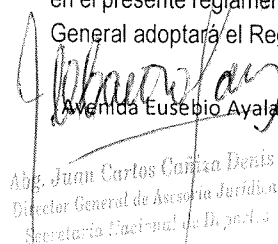 en el presente reglamen
General adoptará el Reg
Avenida Eusebio Ayala
Abg. Juan Carlos Cañisa Denis
Director General de Asesoría Jurídica
Secretaría Nacional de Deportes